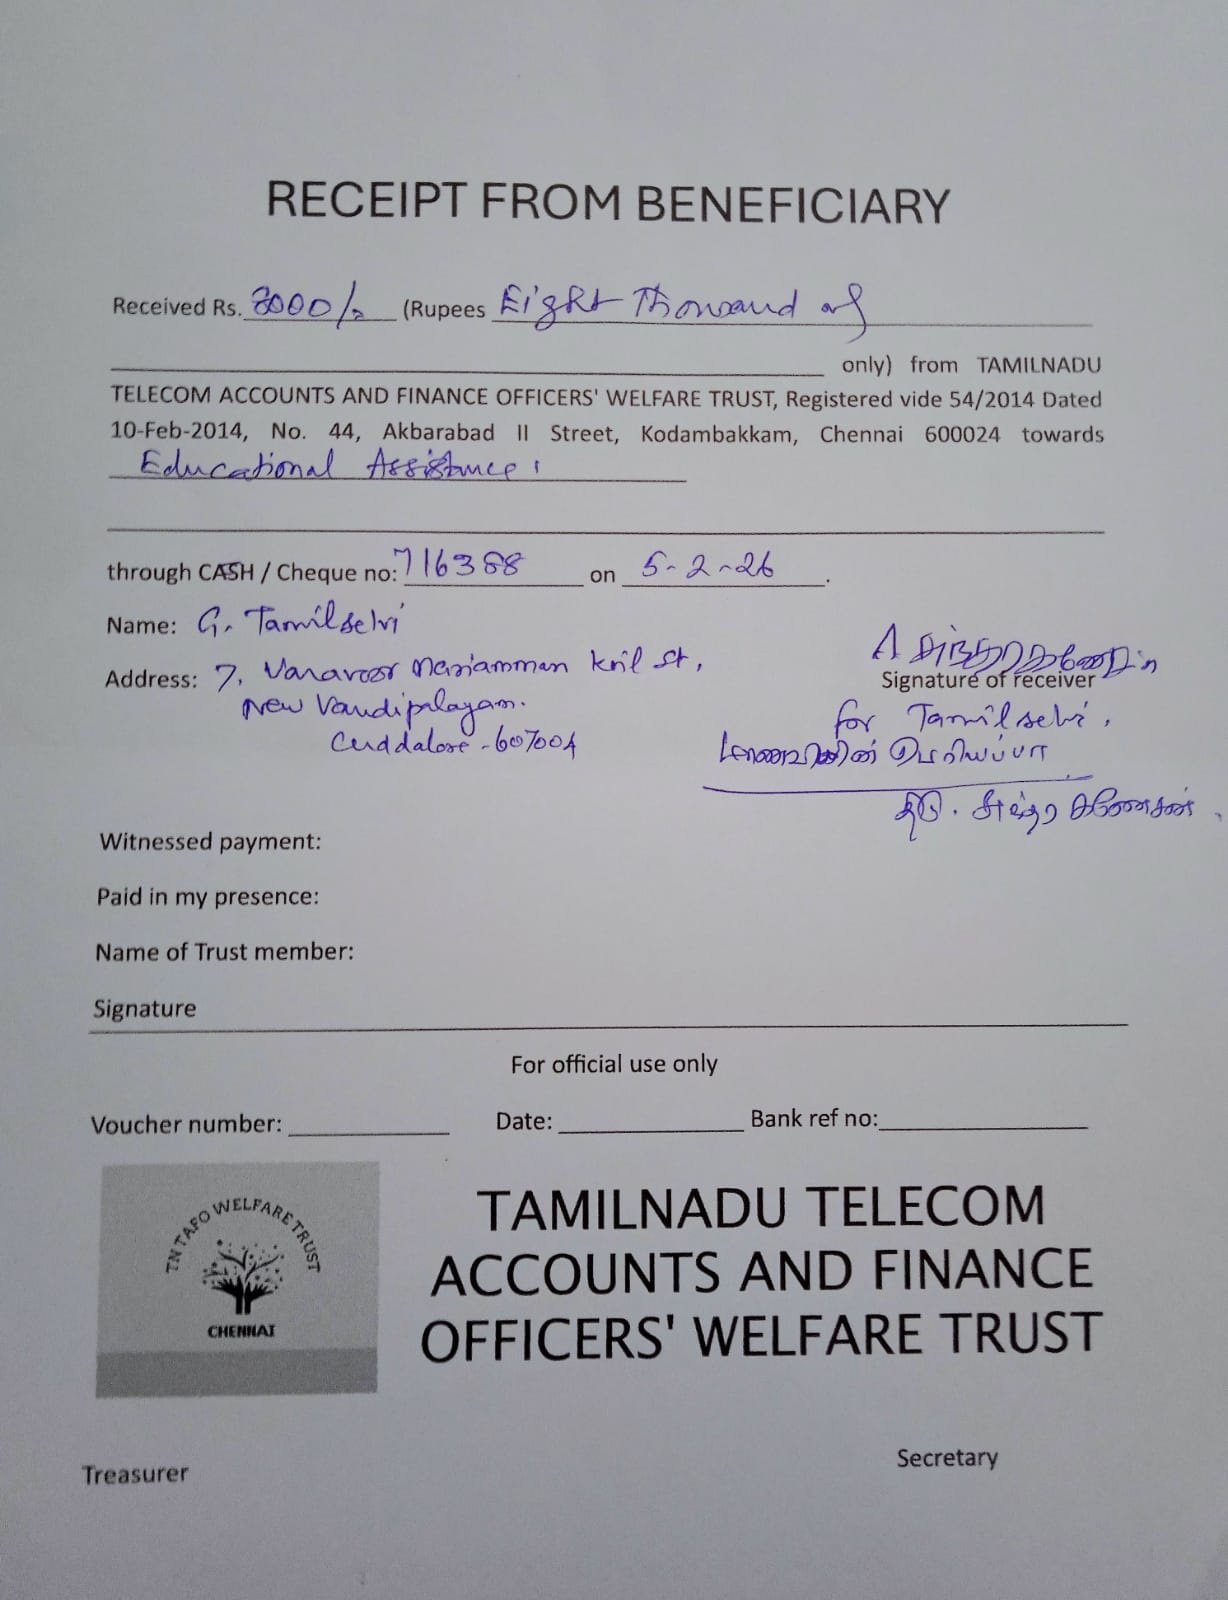 RECEIPT FROM BENEFICIARY
Received Rs. 8000/- (Rupees Eight Thousand only
only) from TAMILNADU
TELECOM ACCOUNTS AND FINANCE OFFICERS' WELFARE TRUST, Registered vide 54/2014 Dated
10-Feb-2014, No. 44, Akbarabad II Street, Kodambakkam, Chennai 600024 towards
Educational Assistance
through CASH / Cheque no: 716388 on 5-2-26.
Name: G. Tamilselvi
Address: 7, Mariamman Koil St,
New Vandipalayam.
Cuddalore - 607004
Signature of receiver
for Tamilselvi,
மாணவியின் பெரியப்பா
திரு.
Witnessed payment:
Paid in my presence:
Name of Trust member:
Signature
For official use only
Voucher number: Date: Bank ref no:
TN TAFO WELFARE TRUST
CHENNAI
TAMILNADU TELECOM
ACCOUNTS AND FINANCE
OFFICERS' WELFARE TRUST
Treasurer
Secretary